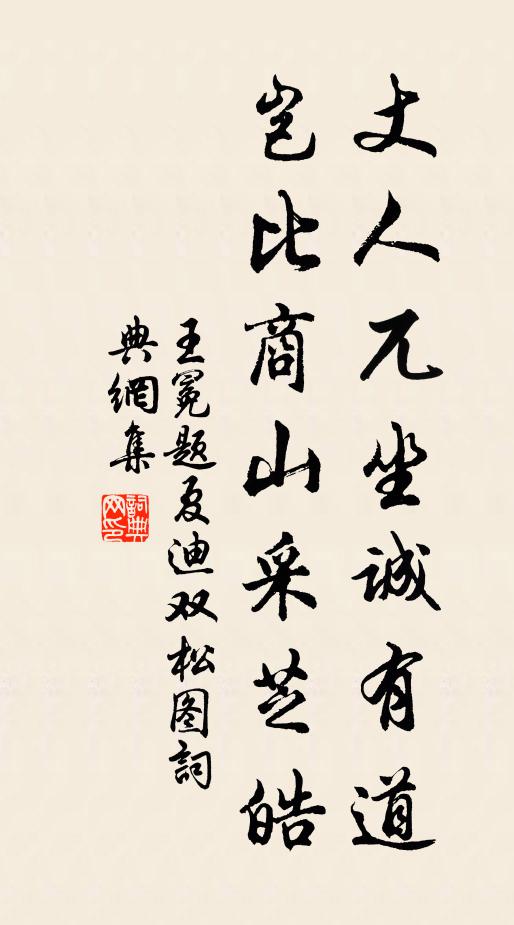 丈人兀坐诚有道
岂比商山采芝皓
王冕题夏迪双松图詞
典網集
詞典网印